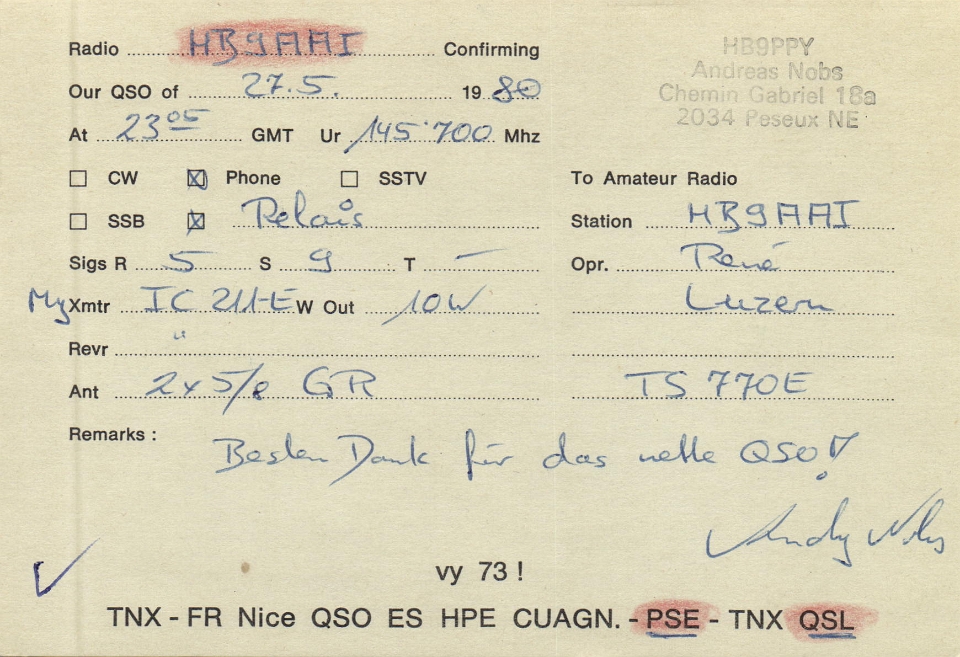 Radio HB9AAI Confirming
HB9PPY
Andreas Nobs
Chemin Gabriel 18a
2034 Peseux NE
Our QSO of 27.5. 1980
At 23⁰⁵ GMT Ur 145.700 Mhz
☐ CW ☒ Phone ☐ SSTV
☐ SSB ☒ Relais
Sigs R 5 S 9 T –
My Xmtr IC 211-E W Out 10W
Revr "
Ant 2x5/8 GR
To Amateur Radio
Station HB9AAI
Opr. René
Luzern
TS 770E
Remarks : Besten Dank für das nette QSO!
Andy Nobs
✓
vy 73 !
TNX - FR Nice QSO ES HPE CUAGN. - PSE - TNX QSL